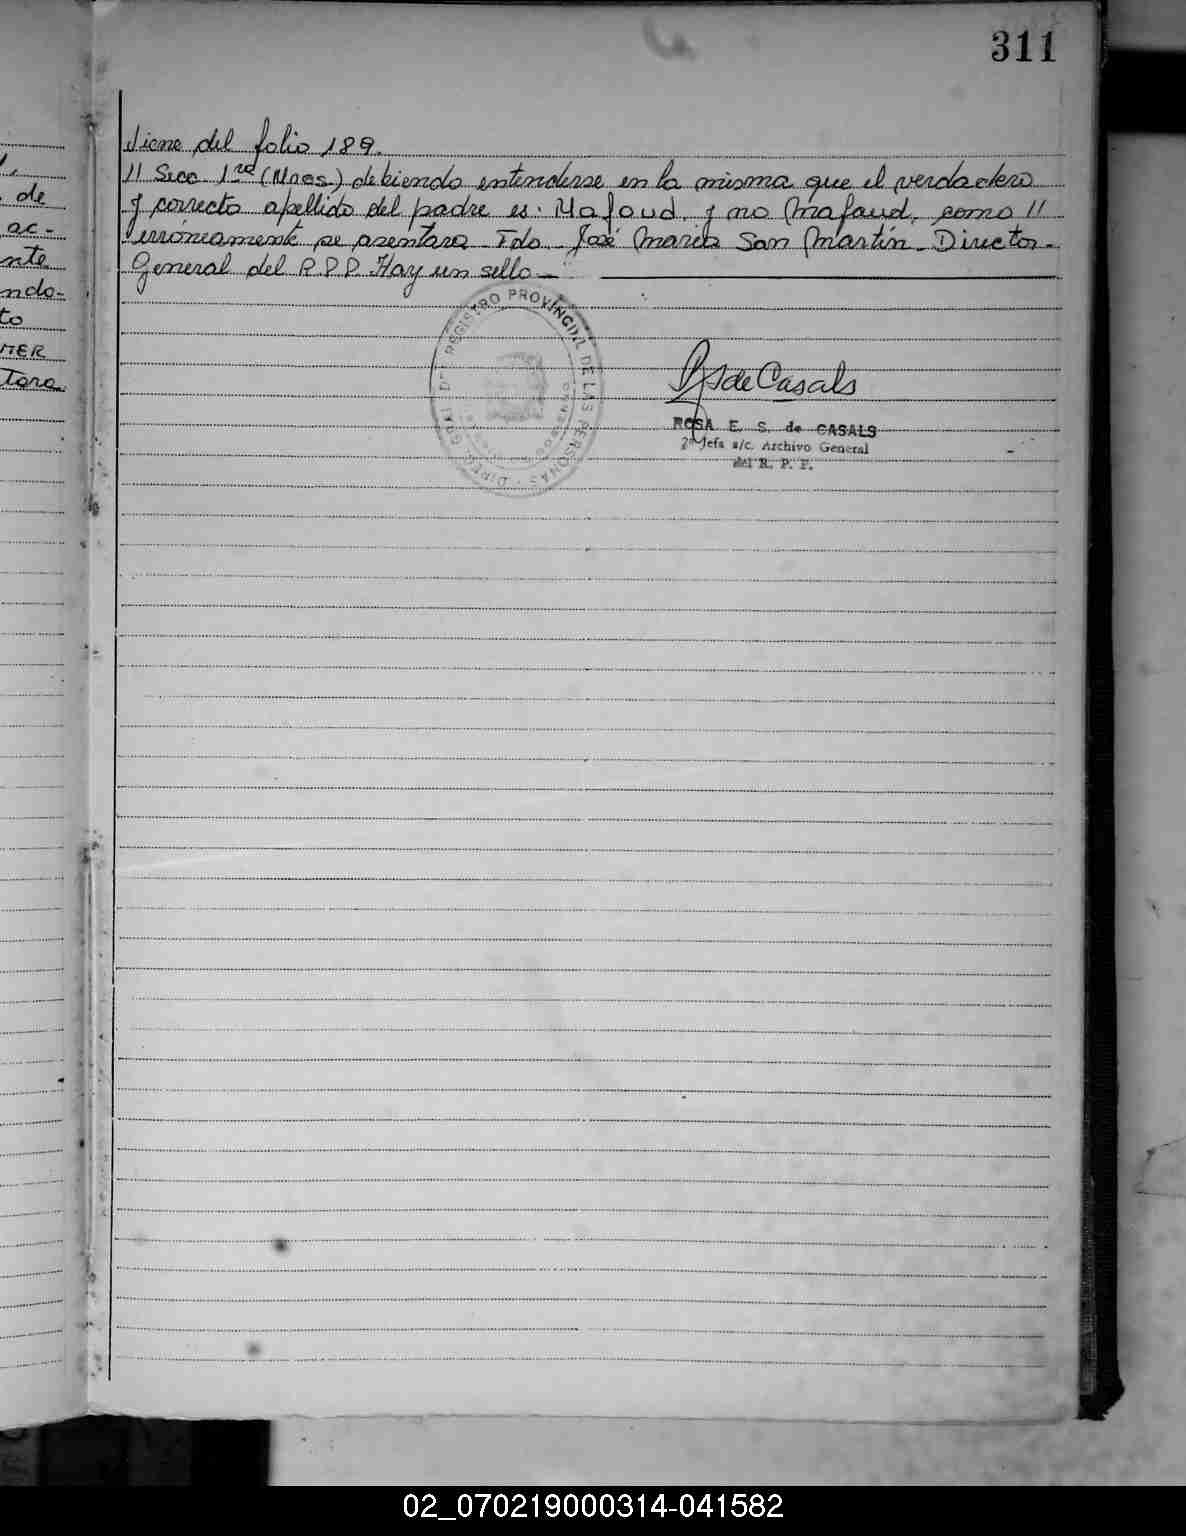 311
Viene del folio 189.
// Secc 1ra (Nnes.) debiendo entenderse en la misma que el verdadero
y correcto apellido del padre es: Mafoud, y no Mafaud, como //
erróneamente se asentara Fdo. José Maria San Martín - Director-
General del R.P.P. Hay un sello -
DIREC. GRAL. DEL REGISTRO PROVINCIAL DE LAS PERSONAS
de Casals
ROSA E. S. de CASALS
2ª Jefa a/c. Archivo General
del R. P. P.
de
ac-
nte
ndo-
to
MER
Tara
02_070219000314-041582